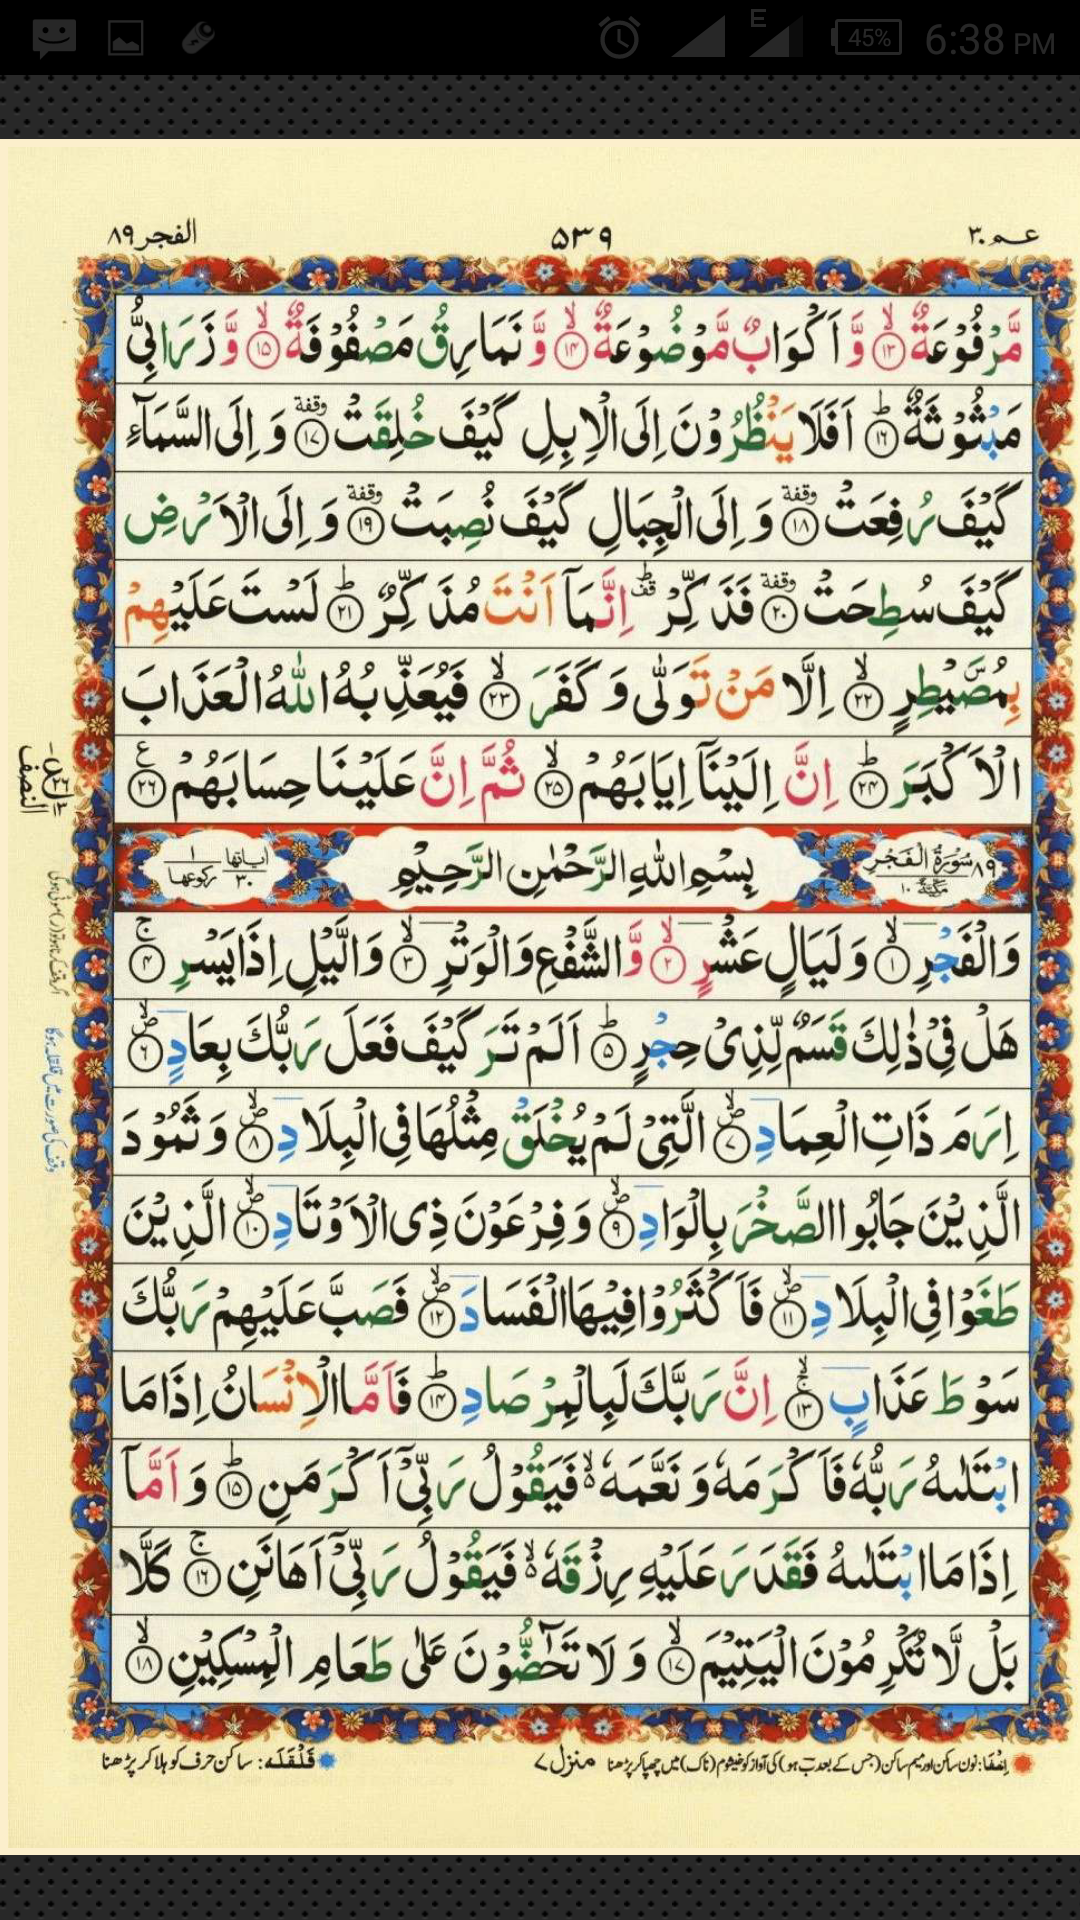 45% 6:38 PM
E
عم ۳۰ ۵۳۹ الفجر ۸۹
مَّرْفُوْعَةٌ ۙ‏﴿۱۳﴾ وَّ اَكْوَابٌ مَّوْضُوْعَةٌ ۙ‏﴿۱۴﴾ وَّ نَمَارِقُ مَصْفُوْفَةٌ ۙ‏﴿۱۵﴾ وَّ زَرَابِيُّ
مَبْثُوْثَةٌ ؕ‏﴿۱۶﴾ اَفَلَا يَنْظُرُوْنَ اِلَى الْاِبِلِ كَيْفَ خُلِقَتْ وقفة ﴿۱۷﴾ وَ اِلَى السَّمَآءِ
كَيْفَ رُفِعَتْ وقفة ﴿۱۸﴾ وَ اِلَى الْجِبَالِ كَيْفَ نُصِبَتْ وقفة ﴿۱۹﴾ وَ اِلَى الْاَرْضِ
كَيْفَ سُطِحَتْ وقفة ﴿۲۰﴾ فَذَكِّرْ قف ؕ اِنَّمَآ اَنْتَ مُذَكِّرٌ ؕ‏﴿۲۱﴾ لَسْتَ عَلَيْهِمْ
بِمُصَۜيْطِرٍ ۙ‏﴿۲۲﴾ اِلَّا مَنْ تَوَلّٰى وَ كَفَرَ ۙ‏﴿۲۳﴾ فَيُعَذِّبُهُ اللّٰهُ الْعَذَابَ
الْاَكْبَرَ ؕ‏﴿۲۴﴾ اِنَّ اِلَيْنَآ اِيَابَهُمْ ۙ‏﴿۲۵﴾ ثُمَّ اِنَّ عَلَيْنَا حِسَابَهُمْ ﴿۲۶﴾ ع
النصف
۸۹ سُوْرَةُ الْفَجْرِ مَكِّيَّةٌ ۱۰ بِسْمِ اللّٰهِ الرَّحْمٰنِ الرَّحِيْمِ اٰيَاتُهَا ۳۰ رُكُوْعُهَا ۱
وَالْفَجْرِ ۙ‏﴿۱﴾ وَ لَيَالٍ عَشْرٍ ۙ‏﴿۲﴾ وَّ الشَّفْعِ وَالْوَتْرِ ۙ‏﴿۳﴾ وَالَّيْلِ اِذَا يَسْرِ ۚ‏﴿۴﴾
هَلْ فِيْ ذٰلِكَ قَسَمٌ لِّذِيْ حِجْرٍ ؕ‏﴿۵﴾ اَلَمْ تَرَ كَيْفَ فَعَلَ رَبُّكَ بِعَادٍ ۪ۙ‏﴿۶﴾
اِرَمَ ذَاتِ الْعِمَادِ ۪ۙ‏﴿۷﴾ الَّتِيْ لَمْ يُخْلَقْ مِثْلُهَا فِي الْبِلَادِ ۪ۙ‏﴿۸﴾ وَ ثَمُوْدَ
الَّذِيْنَ جَابُوا الصَّخْرَ بِالْوَادِ ۪ۙ‏﴿۹﴾ وَ فِرْعَوْنَ ذِي الْاَوْتَادِ ۪ۙ‏﴿۱۰﴾ الَّذِيْنَ
طَغَوْا فِي الْبِلَادِ ۪ۙ‏﴿۱۱﴾ فَاَكْثَرُوْا فِيْهَا الْفَسَادَ ۪ۙ‏﴿۱۲﴾ فَصَبَّ عَلَيْهِمْ رَبُّكَ
سَوْطَ عَذَابٍ ۚۙ‏﴿۱۳﴾ اِنَّ رَبَّكَ لَبِالْمِرْصَادِ ؕ‏﴿۱۴﴾ فَاَمَّا الْاِنْسَانُ اِذَا مَا
ابْتَلٰىهُ رَبُّهٗ فَاَكْرَمَهٗ وَ نَعَّمَهٗ ۙ۬ فَيَقُوْلُ رَبِّيْٓ اَكْرَمَنِ ؕ‏﴿۱۵﴾ وَ اَمَّآ
اِذَا مَا ابْتَلٰىهُ فَقَدَرَ عَلَيْهِ رِزْقَهٗ ۙ۬ فَيَقُوْلُ رَبِّيْٓ اَهَانَنِ ۚ‏﴿۱۶﴾ كَلَّا
بَلْ لَّا تُكْرِمُوْنَ الْيَتِيْمَ ۙ‏﴿۱۷﴾ وَ لَا تَحٰٓضُّوْنَ عَلٰى طَعَامِ الْمِسْكِيْنِ ۙ‏﴿۱۸﴾
اِخْفَا: نون ساکن اور میم ساکن (جس کے بعد ب ہو) کی آواز کو خیشوم (ناک) میں چھپا کر پڑھنا منزل ۷ قَلْقَلَه: ساکن حرف کو ہلا کر پڑھنا